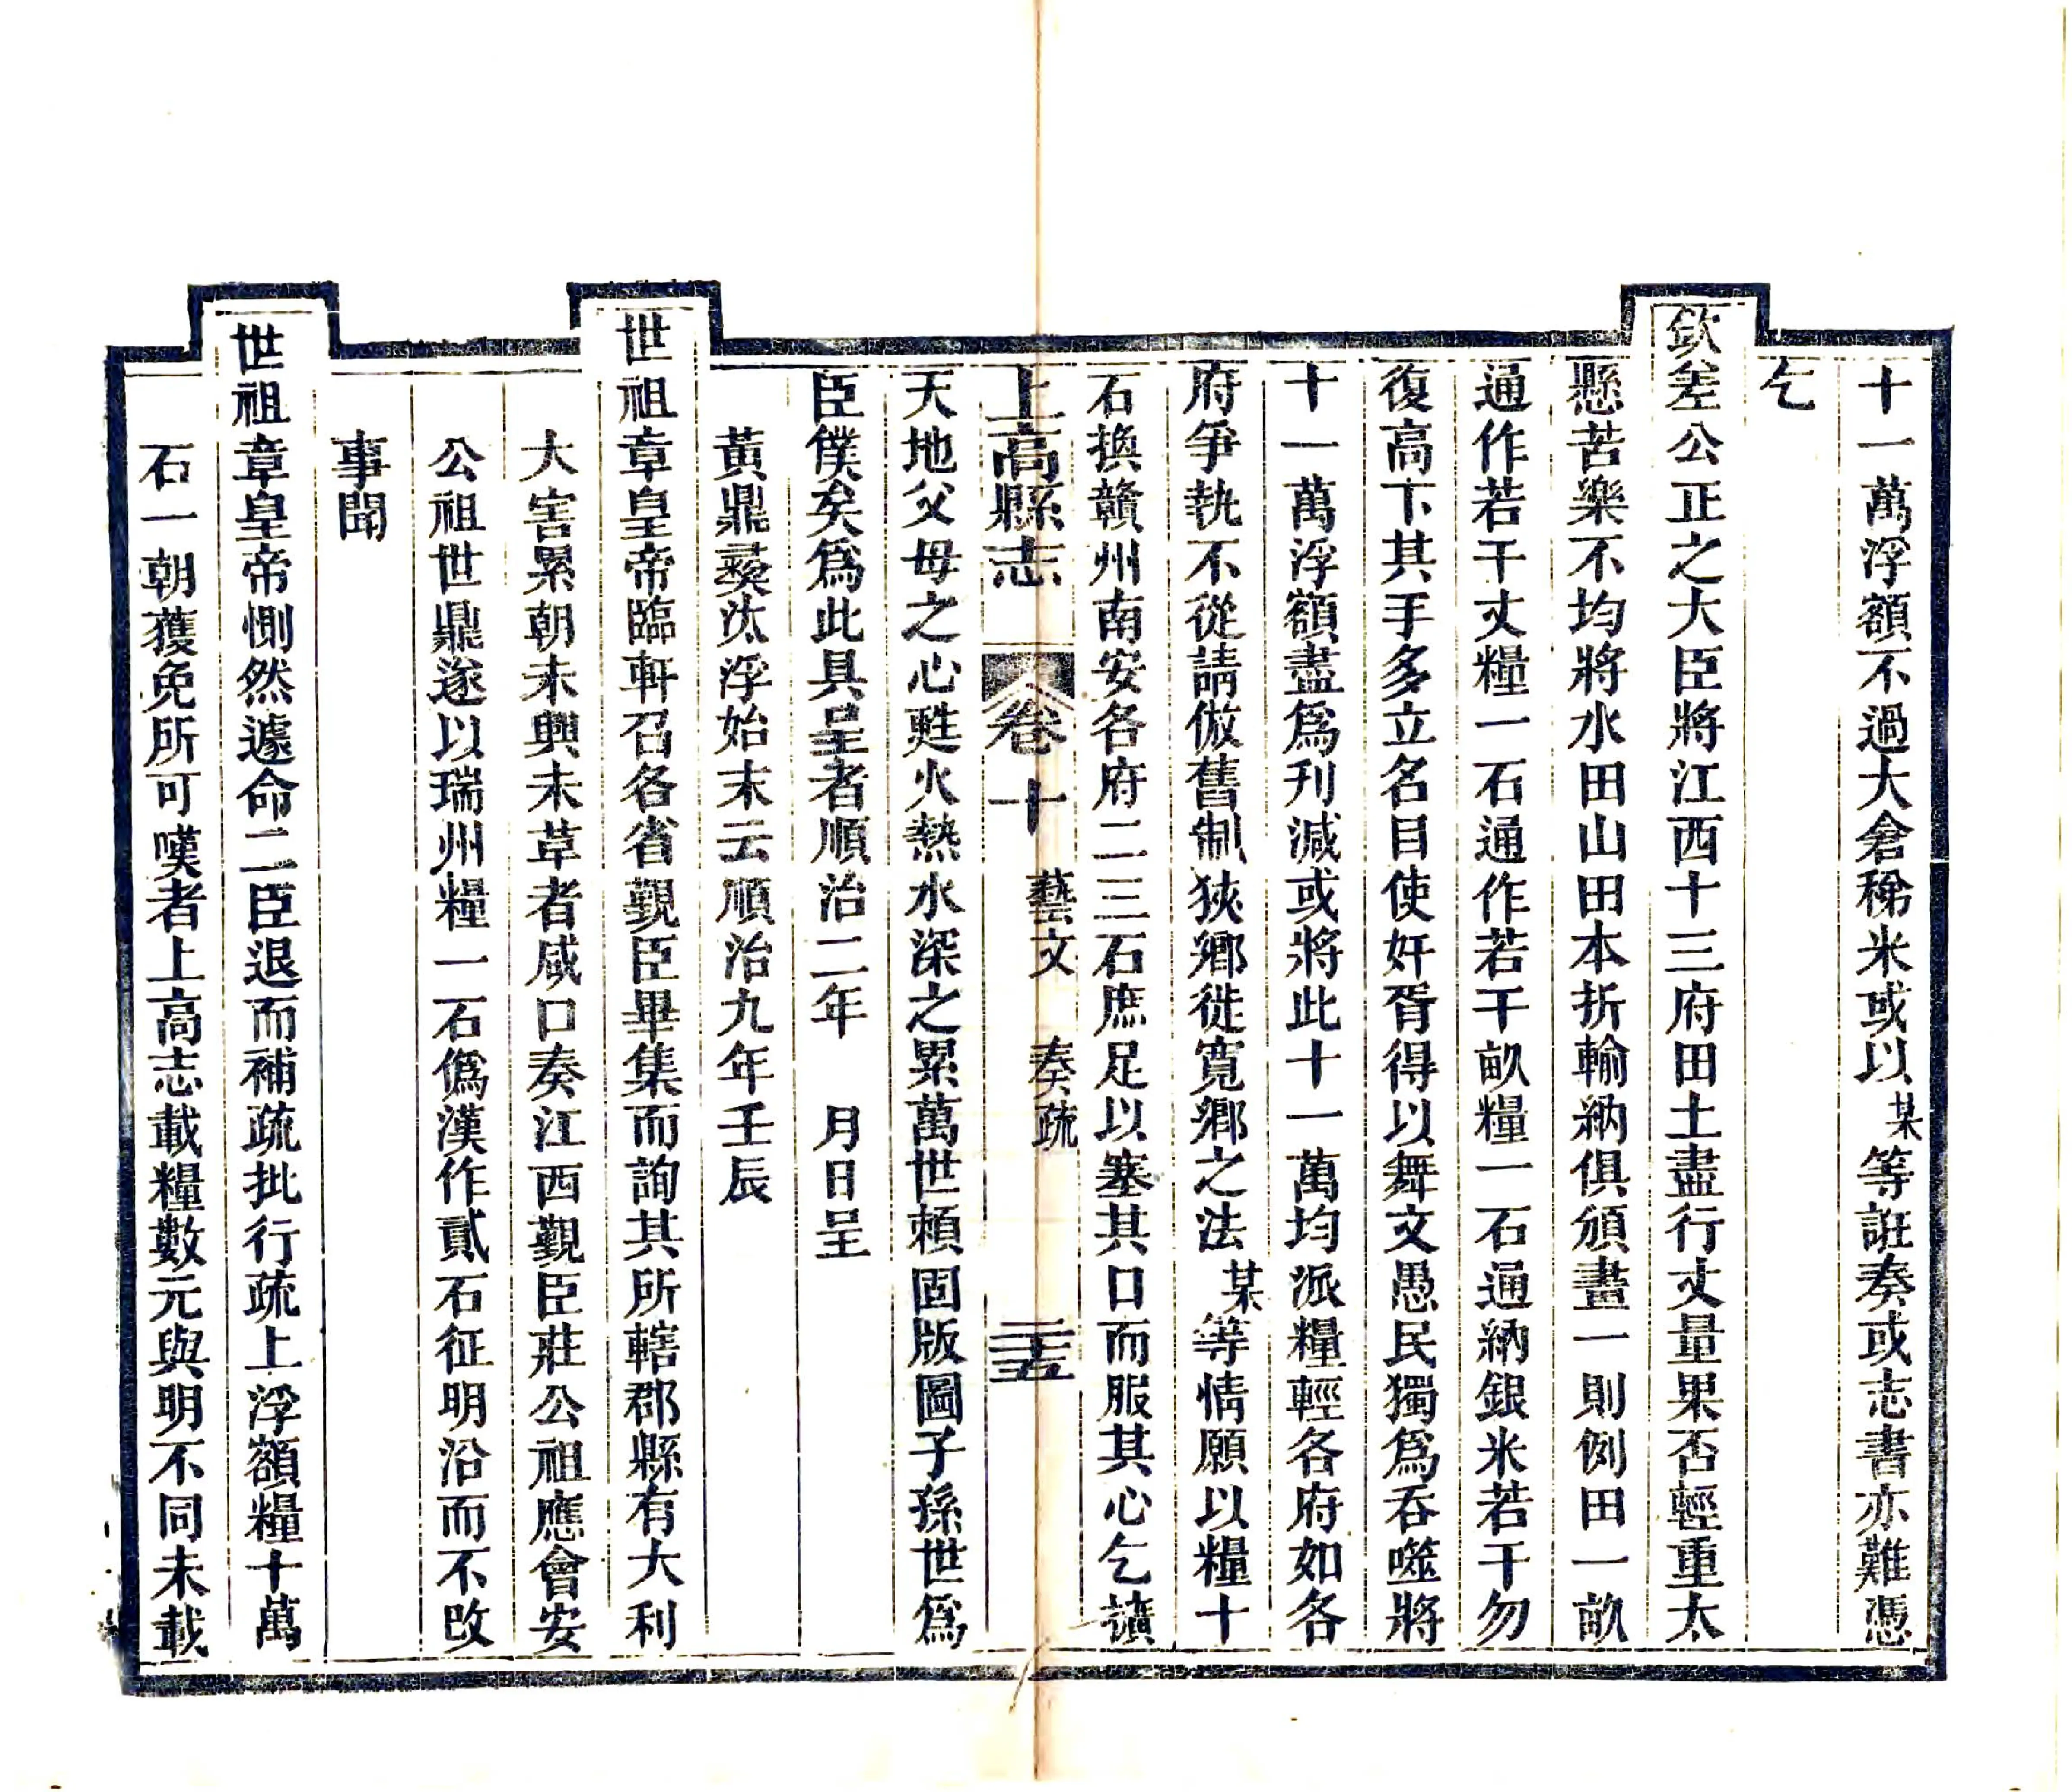 十一萬浮額不過大倉稊米或以某等誑奏或志書亦難憑
乞
欽差公正之大臣將江西十三府田土盡行丈量果否輕重太
懸苦樂不均將水田山田本折輸納俱頒畫一則例田一畝
通作若干丈糧一石通作若干畝糧一石通納銀米若干勿
復高下其手多立名目使奸胥得以舞文愚民獨爲吞噬將
十一萬浮額盡爲刋減或將此十一萬均派糧輕各府如各
府爭執不從請倣舊制狹鄉徙寬鄉之法某等情願以糧十
石換贛州南安各府二三石庶足以塞其口而服其心乞讀
上高縣志 卷十 藝文 奏疏 二十五
天地父母之心甦火熱水深之累萬世賴固版圖子孫世爲
臣僕矣爲此具呈者順治二年 月日呈
黃鼎彛汰浮始末云順治九年壬辰
世祖章皇帝臨軒召各省覲臣畢集而詢其所轄郡縣有大利
大害累朝未興未草者咸口奏江西覲臣莊公祖應會安
公祖世鼎遂以瑞州糧一石僞漢作貳石征明沿而不改
事聞
世祖章皇帝惻然遽命二臣退而補疏批行疏上浮額糧十萬
石一朝獲免所可嘆者上高志載糧數元與明不同未載